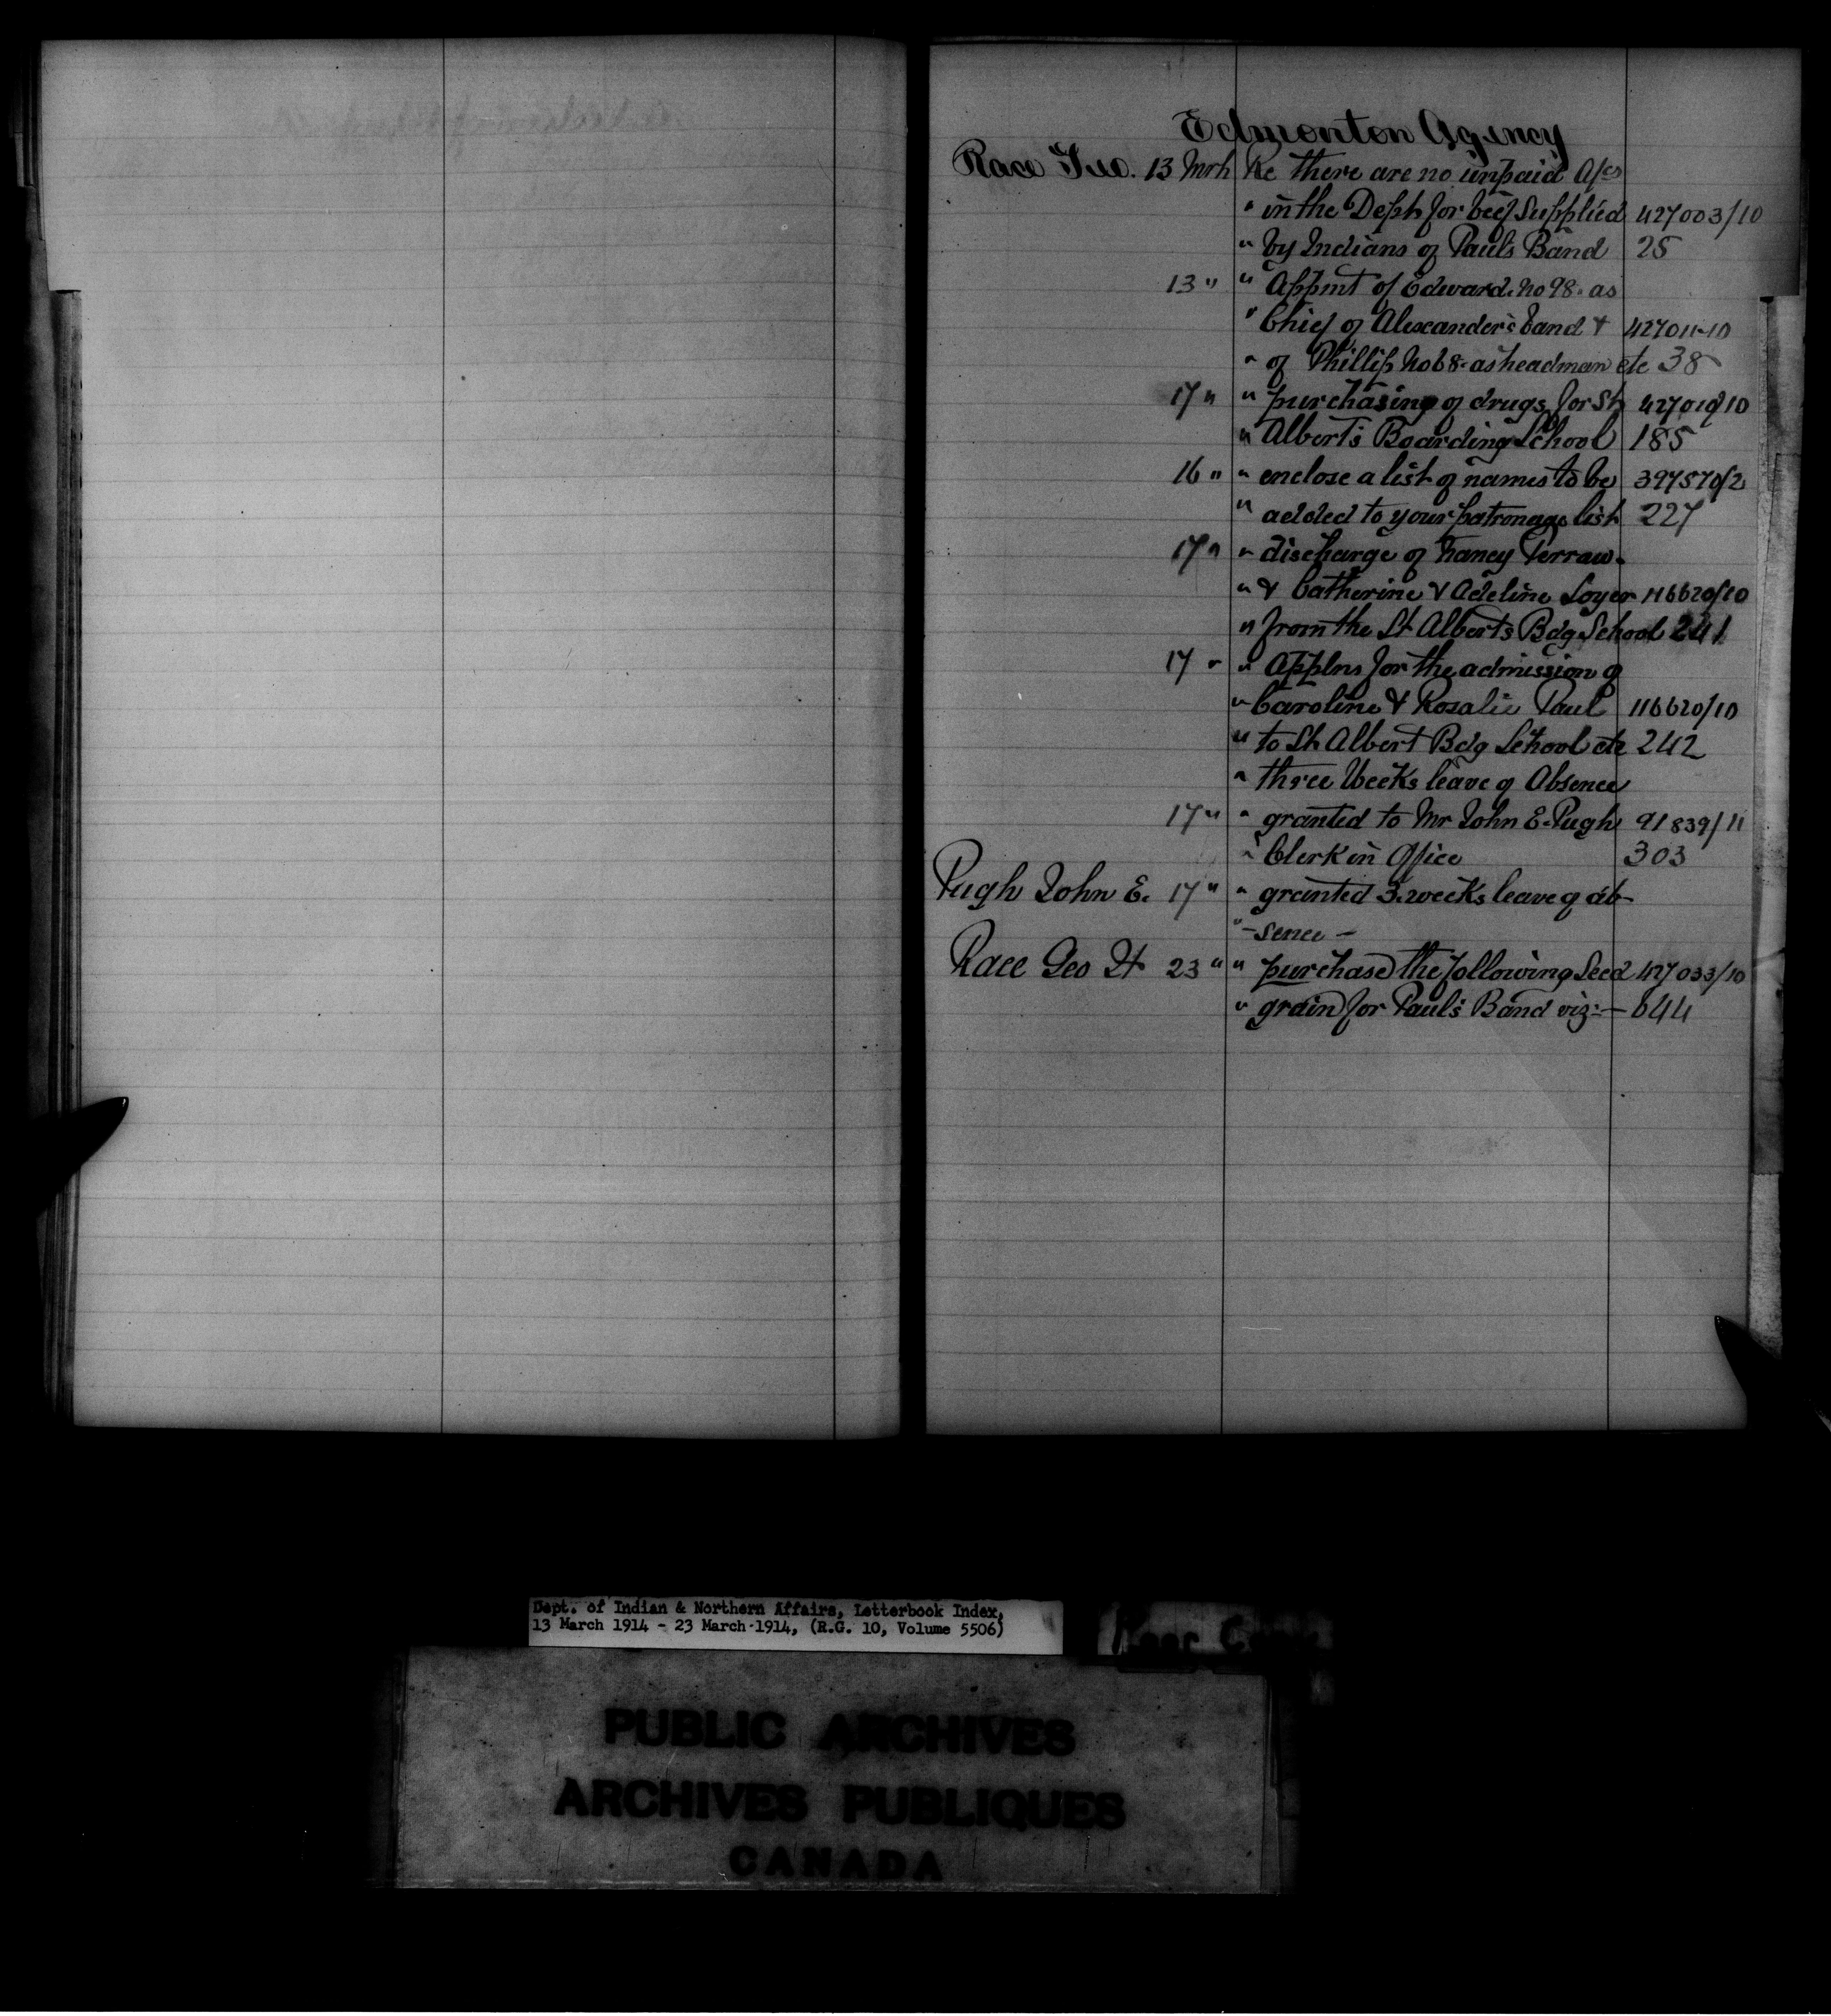 Edmonton Agency
Race Geo. 13 Mrh Re there are no unpaid A/cs
" in the Dept for beef Supplied 427003/10
" by Indians of Paul's Band 25
13 " " Appmt of Edward No 98. as
" Chief of Alexander's band & 427011-10
" of Phillip No 68. as headman etc 38
17 " " purchasing of drugs for St 427010/10
" Albert's Boarding School 185
16 " " enclose a list of names to be 397570/2
" added to your patronage list 227
17 " " discharge of Nancy
" & Catherine & Adeline Loyer 116620/10
" from the St Albert's Bdg School 241
17 " " Applns for the admission of
" Caroline & Rosalie Paul 116620/10
" to St Albert Bdg School etc 242
" three Weeks leave of Absence
17 " " granted to Mr John E. Pugh 91839/11
" Clerk in Office 303
Pugh John E. 17 " " granted 3. weeks leave of ab-
" -sence -
Race Geo H 23 " " purchase the following Seed 427033/10
" grain for Paul's Band viz:- 644
Dept. of Indian & Northern Affairs, Letterbook Index,
13 March 1914 - 23 March 1914, (R.G. 10, Volume 5506)
PUBLIC ARCHIVES
ARCHIVES PUBLIQUES
CANADA